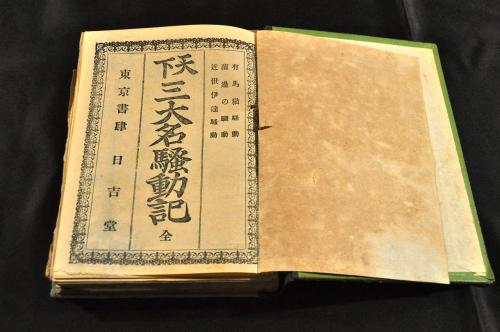 有馬猫騷動
の騷動
近世伊達騷動
天下三大名騷動記 全
東京書肆 日吉堂